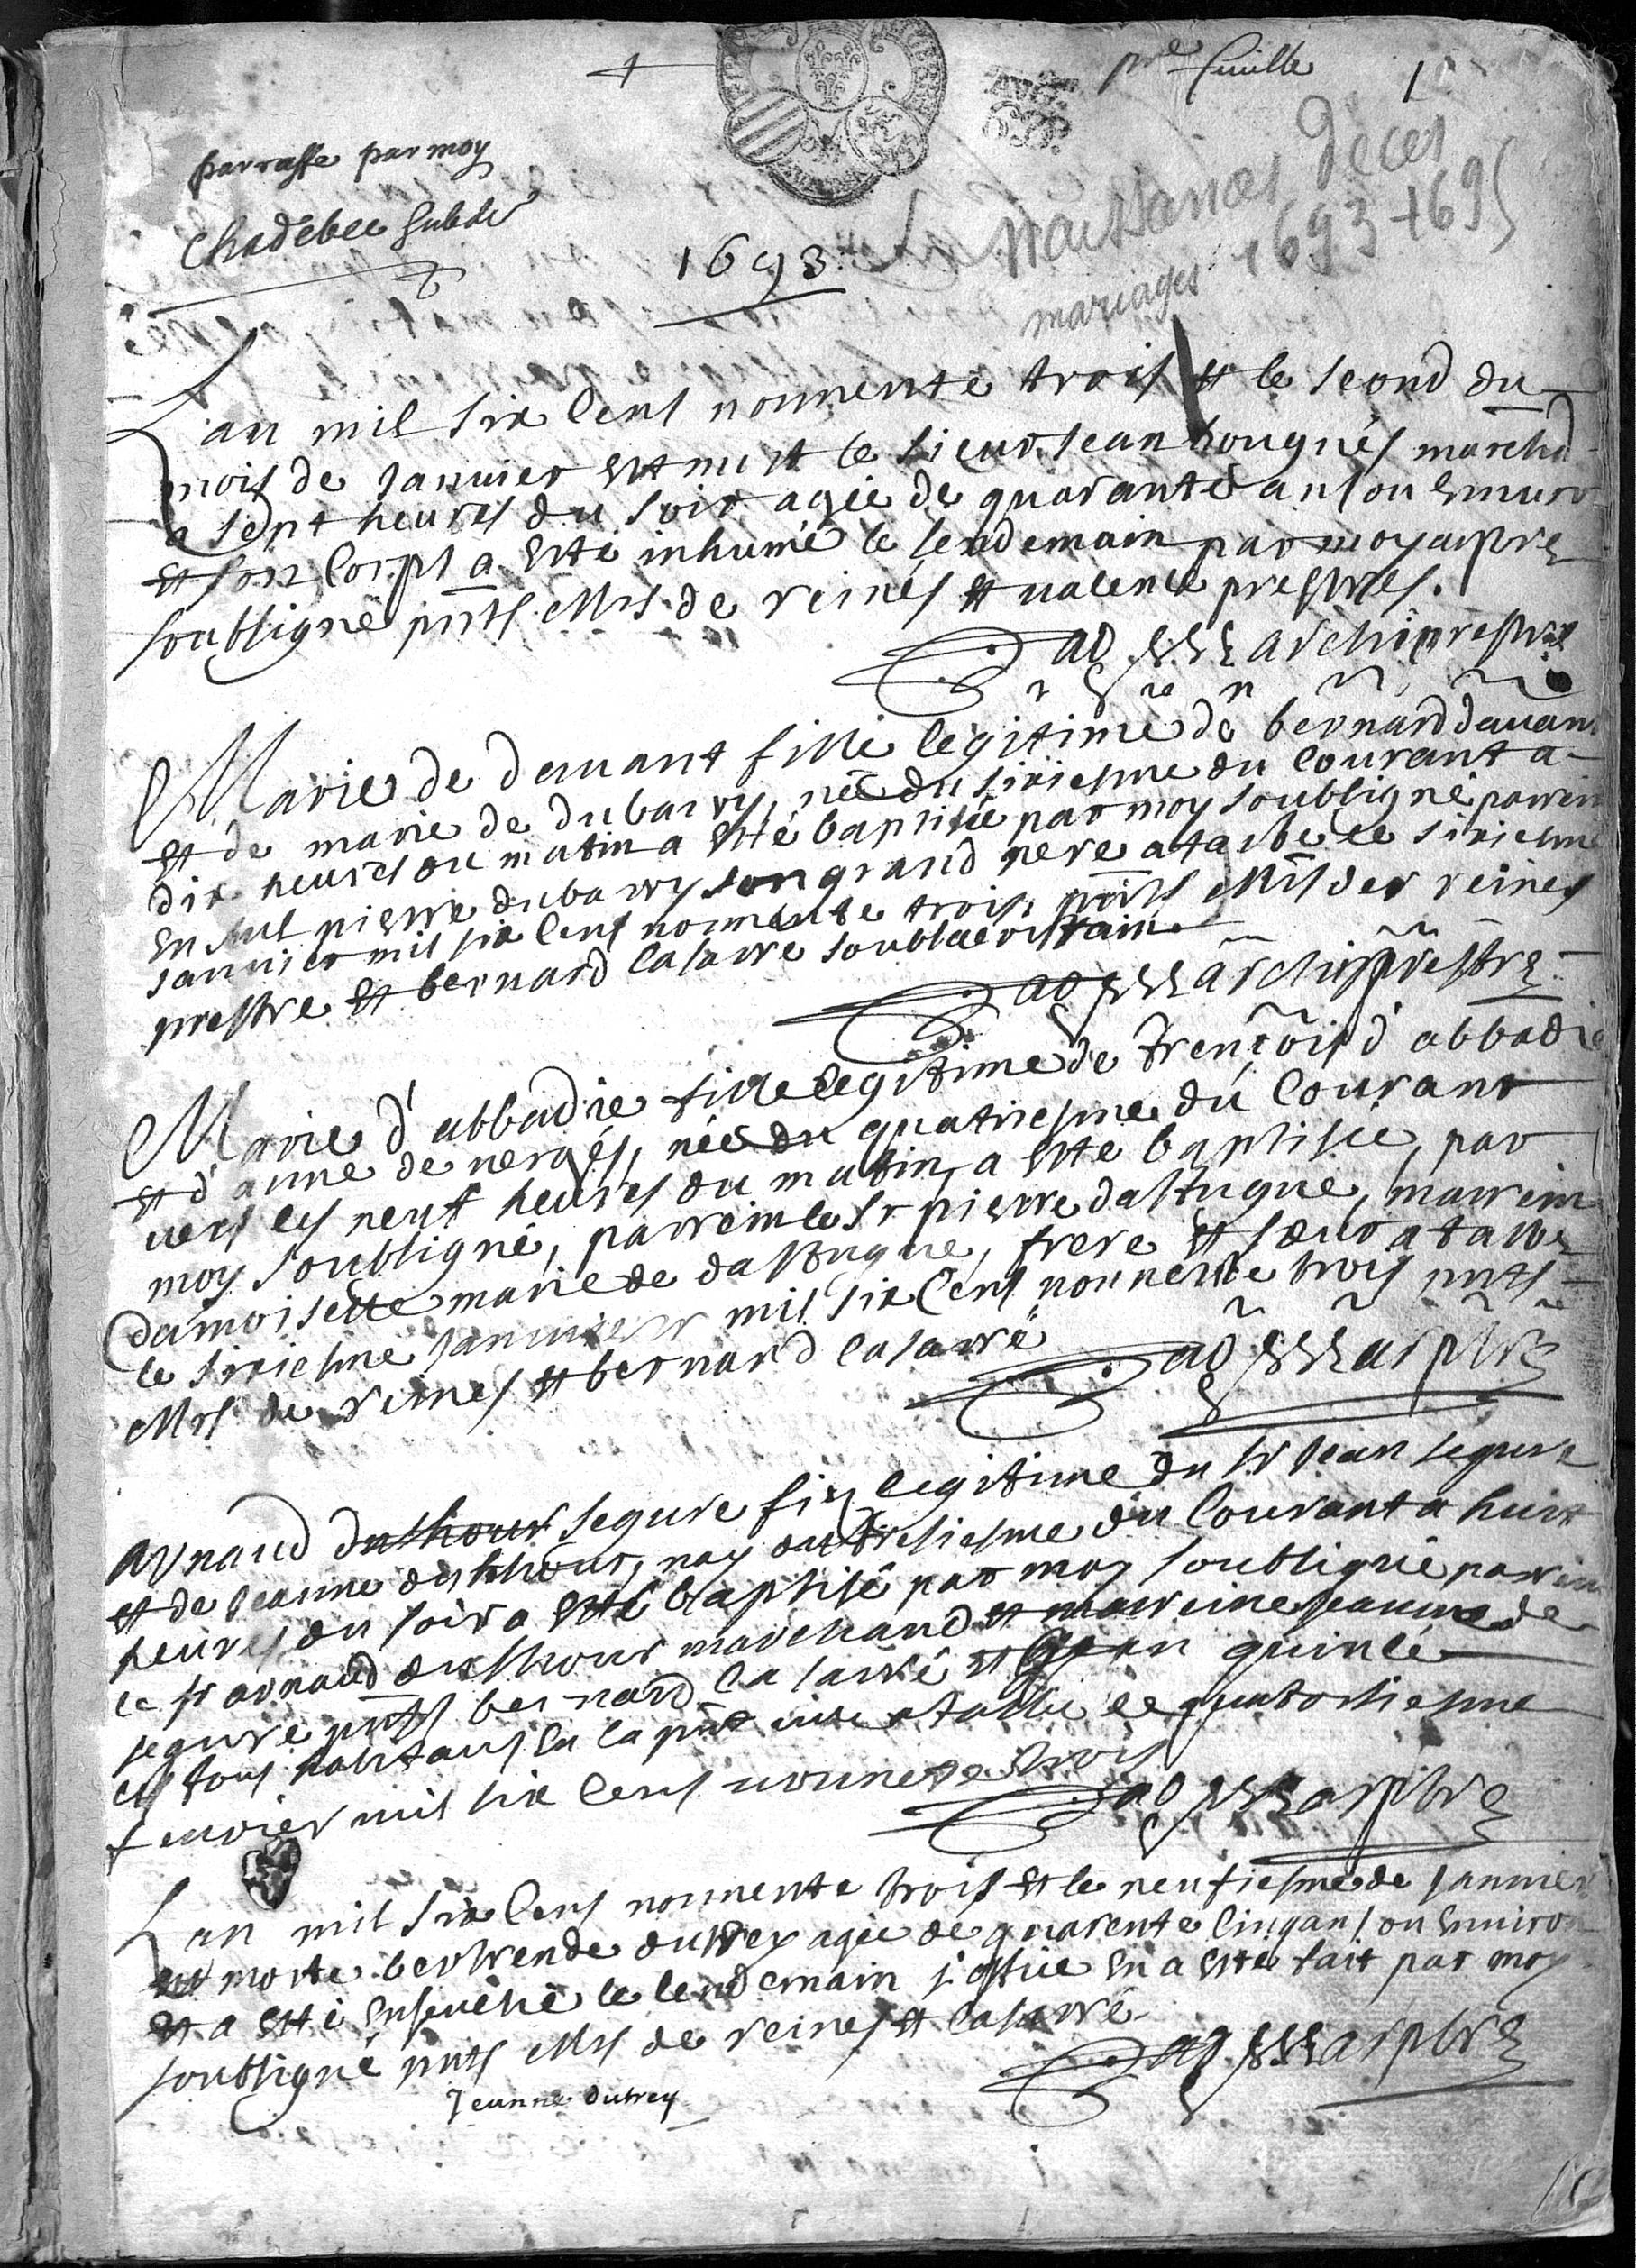 pre feuille
1
parraffe par moy
Chadebec Subdé
Naissances Décès
mariages 1693-1695
1693
L'an mil six cens nonnente trois et le second du
mois de Janvier est mort le sieur Jean marchd
a sept heures du soir agée de quarante ans ou environ
et son corps a esté inhumé le lendemain par moy arpre
soubsigné pnts Mrs de reines et valence prestres.
archiprestre
Marie de devant fille légitime de bernard davant
et de marie de dubarry, née du sixiesme du courant a
dix heures du matin a esté baptisée par moy soubsigné parrein
pierre dubarry son grand pere a tarbe le sixiesme
Janvier mil six cens nonnente trois pnts Mrs de reines
prestre et bernard casarré soubsacristain
archiprestre
Marie d'abbadie fille legitime de frençois d'abbadie
et d'anne de vergés, née du quatriesme du courant
vers les neuf heures du matin, a esté baptisée, par
moy soubsigné, parrein le Sr pierre dastugue, marreine
damoiselle marie de dastugue, frere et sœur a tarbe
le sixiesme Janvier mil six cens nonnente trois pnts
Mrs de reines et bernard casarré
arptre
Arnaud duthour segure fils legitime du Sr Jean segure
et de Jeanne duthour, nay du tresiesme du courant a huit
heures du soir a esté baptisé par moy soubsigné parrein
le Sr arnaud duthour marchand et marreine Jeanne de
segure pnts bernard casarré et Jean quinle
tous habitans en la pnte ville a tarbe le quatorsiesme
fevrier mil six cens nonnete trois
arptre
L'an mil six cens nonnente trois et le neufiesme de Janvier
est morte bertrende dutrey agée de quarente cinq ans ou environ
et a esté ensevelie le lendemain l'office en a esté fait par moy
soubsigné pnts Mrs de reines et casarré
arptre
Jeanne dutrey